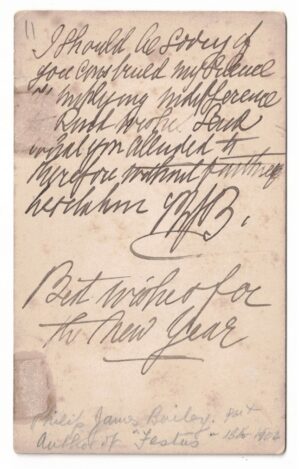 I should be sorry if
you construed my silence
as implying indifference
what you alluded to
therefore without further
hesitation PJB.
Best wishes for
the New Year
Philip James Bailey.
Author of "Festus" 1816-1902